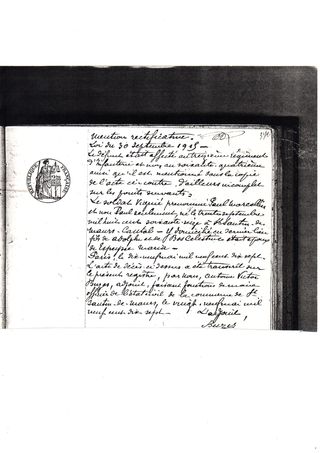 mention rectificative.
Loi du 30 septembre 1915 -
Le défunt était affecté au treizième régiment
d'Infanterie et non au soixante quatrième
ainsi qu'il est mentionné dans la copie
de l'acte ci-contre, d'ailleurs incomplet
sur les points suivants.
Le soldat prénommé Paul Marcellin
et non Paul seulement, né le trente septembre
mil huit cent soixante seize à St Santin de
maurs - Cantal - Y domicilié en dernier lieu
fils de adolphe et de Bos Célestine était époux
de Marie -
Paris, le dix neuf mai mil neuf cent dix sept.
L'acte de décès ci dessus a été transcrit sur
le présent registre, par nous, antoine Victor
adjoint, faisant fonctions de maire
officier de l'état civil de la commune de St
Santin de maurs, le vingt neuf mai mil
neuf cent dix sept. - L'adjoint,